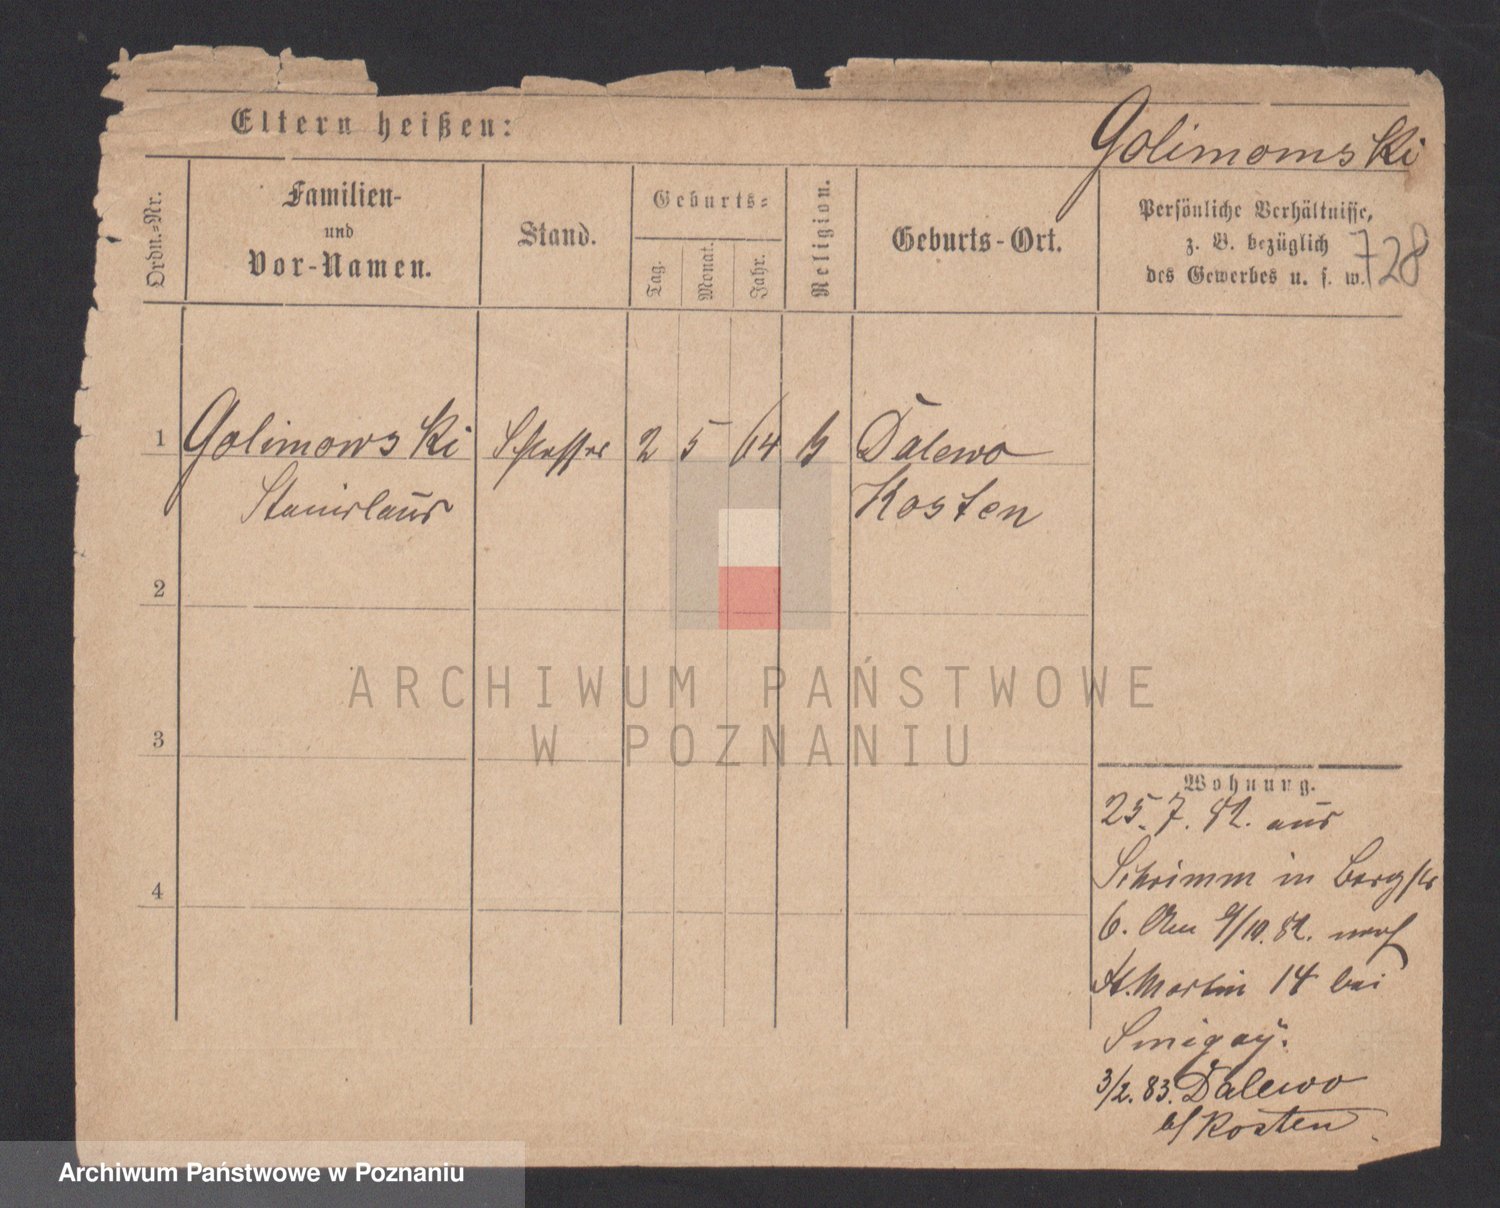 Eltern heißen:
Golimowski
Ordn.-Nr.
Familien-
und
Vor-Namen.
Stand.
Geburts-
Tag.
Monat.
Jahr.
Religion.
Geburts-Ort.
Persönliche Verhältnisse,
z. B. bezüglich
des Gewerbes u. s. w.
728
1 Golimowski Schlosser 2 5 64 k Dalewo
Stanislaus Kosten
2
3
4
Wohnung.
25. 7. 82. aus
Schrimm in Bergstr
6. Am 9/10. 82. nach
St. Martin 14 bei
Smigaÿ.
3/2. 83. Dalewo
b/ Kosten
ARCHIWUM PAŃSTWOWE
W POZNANIU
Archiwum Państwowe w Poznaniu